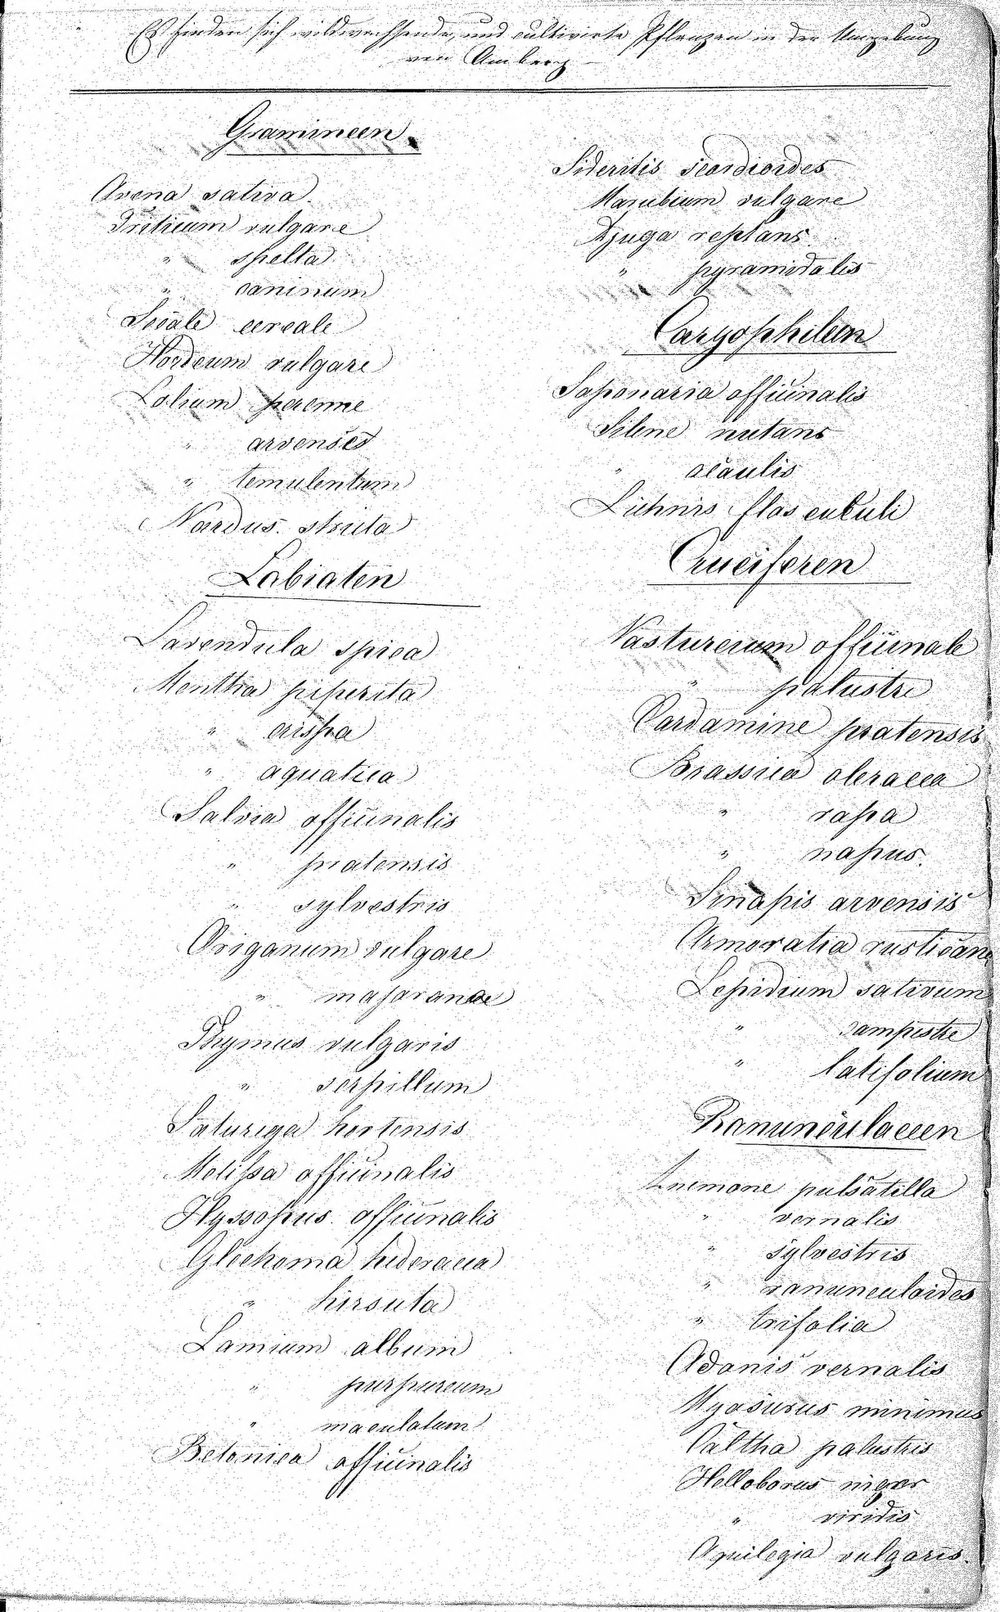 Es finden sich wildwachsende, und cultivirte Pflanzen in der Umgebung
von Amberg
Gramineen.
Avena sativa.
Triticum vulgare
" spelta
" caninum
Secale cereale
Hordeum vulgare
Lolium perenne
" arvense
" temulentum
Nardus stricta
Labiaten
Lavendula spica
Mentha piperita
" crispa
" aquatica
Salvia officinalis
" pratensis
" sylvestris
Origanum vulgare
" majorana
Thymus vulgaris
" serpillum
Saturega hortensis
Melissa officinalis
Hyssopus officinalis
Glechoma hederacea
" hirsuta
Lamium album
" purpureum
" maculatum
Betonica officinalis
Sideritis scordioides
Marubium vulgare
Ajuga reptans
" pyramidalis
Caryophileen
Saponaria officinalis
Silene nutans
" acaulis
Lichnis flos cuculi
Cruciferen
Nasturcium officinale
" palustre
Cardamine pratensis
Brassica oleracea
" rapa
" napus.
Sinapis arvensis
Armoratia rusticana
Lepidium sativum
" campestre
" latifolium
Ranunculaceen
Anemone pulsatilla
" vernalis
" sylvestris
" ranunculoides
" trifolia
Adonis vernalis
Myosurus minimus
Caltha palustris
Helloborus niger
" viridis
Aquilegia vulgaris.